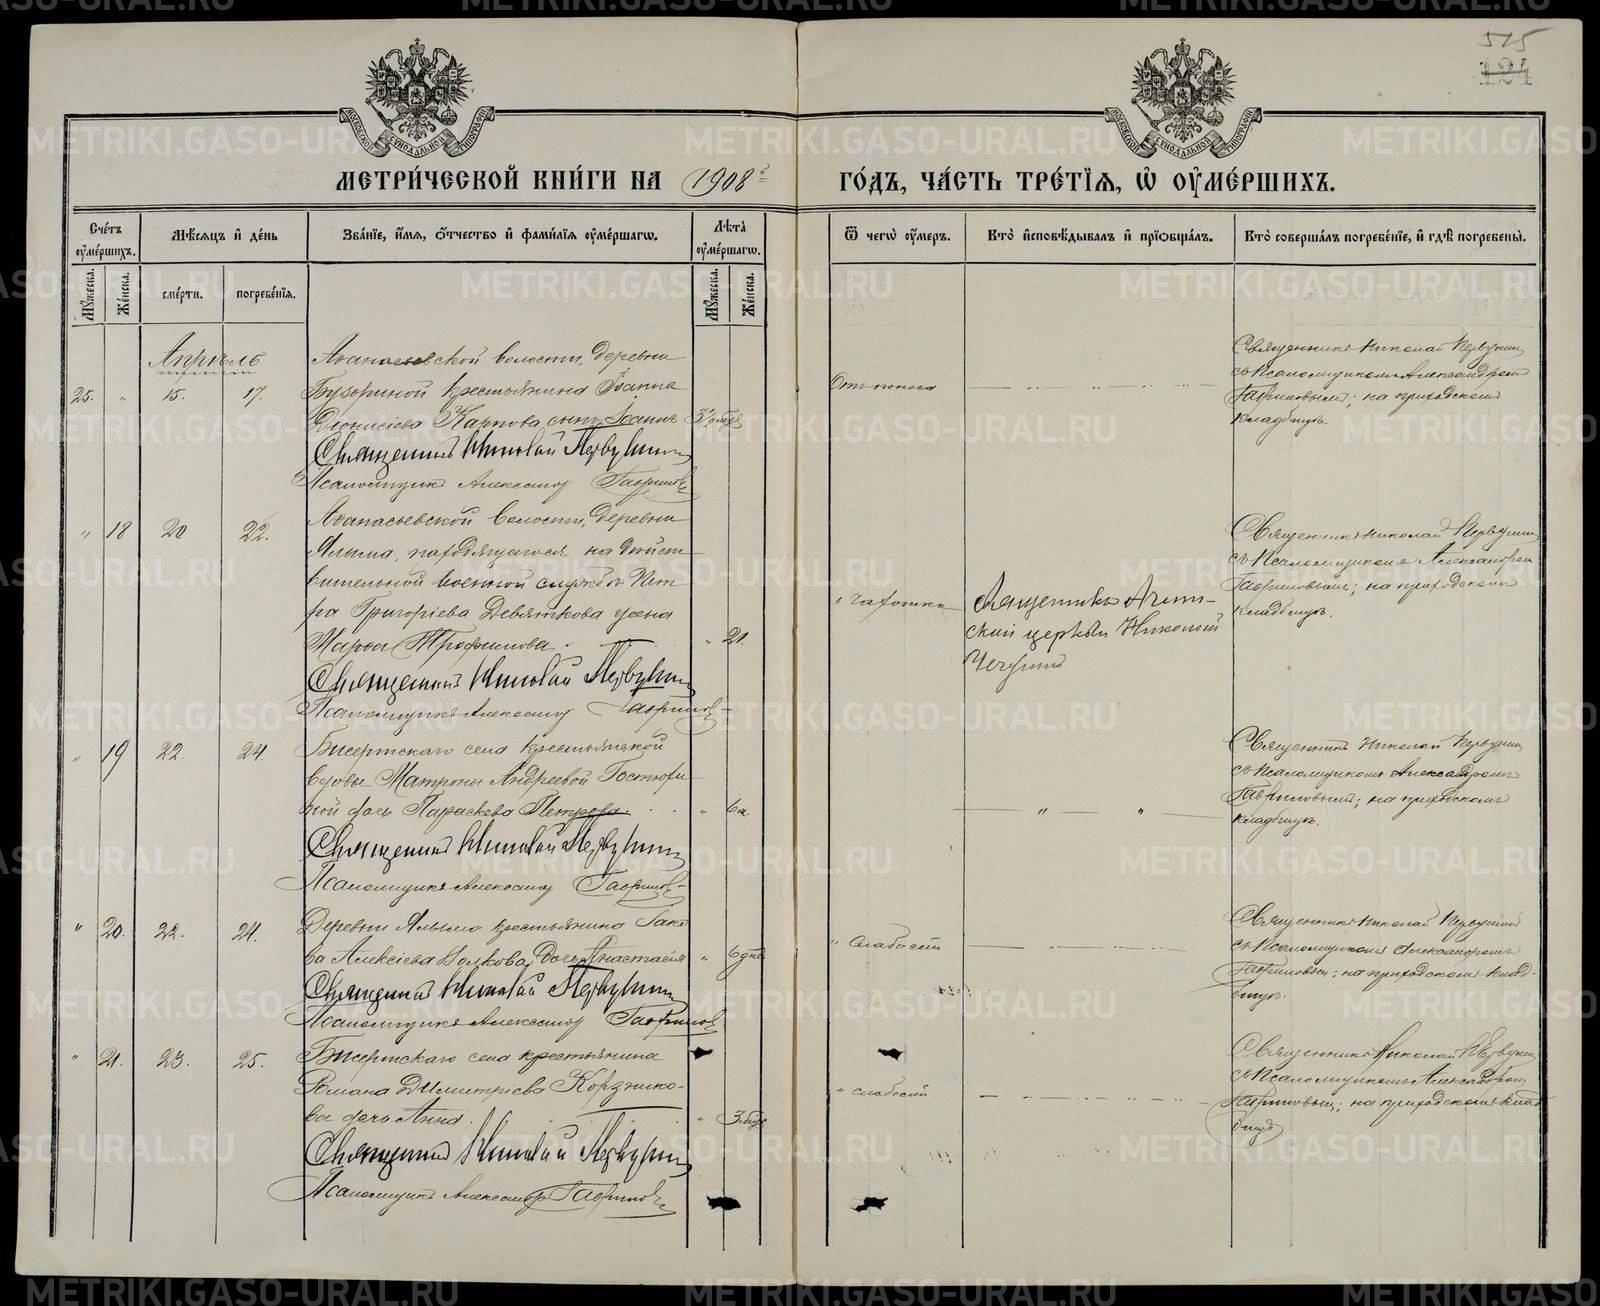 515
124
МЕТРИ́ЧЕСКОЙ КНИ́ГИ НА 1908 ГО́ДЪ, ЧА́СТЬ ТРЕ́ТЇѦ, Ѡ҆ ОУ҆МЕ́РШИХЪ.
Сче́тъ оу҆ме́ршихъ.
Мѣ́сѧцъ и҆ де́нь
Зва́нїе, и҆́мѧ, ѻ҆́тчество и҆ фами́лїѧ оу҆ме́ршагѡ.
Лѣ́та оу҆ме́ршагѡ.
Ѿ чегѡ̀ оу҆́меръ.
Кто̀ и҆сповѣ́дывалъ и҆ прїѡбща́лъ.
Кто̀ соверша́лъ погребе́нїе, и҆ гдѣ̀ погребены̀.
Мꙋ́жеска. Же́нска.
сме́рти. погребе́нїѧ.
Мꙋ́жеска. Же́нска.
Апрѣль
25. " 15. 17.
Аѳанасьевской волости, деревни
крестьянина Іоанна
Діонисіева Карпова сынъ Іоаннъ
Священникъ Николай Первушин
Псаломщикъ Александр Гаврилов
Отъ поноса
Священникъ Николай Первушин
съ Псаломщикомъ Александром
Гавриловымъ; на приходскомъ
кладбищѣ
" 18 20 22.
Аѳанасьевской волости, деревни
Ялыма, находящагося на дѣйст
вительной военной службѣ Пет
ра Григоріева Девяткова жена
Марѳа Трофимова " 21.
Священникъ Николай Первушин
Псаломщикъ Александр Гаврилов
" Чахотка
Священникъ
ской церкви Николай
Священникъ Николай Первушин
съ Псаломщикомъ Александром
Гавриловым; на приходскомъ
кладбищѣ.
" 19 22. 24.
Бисертскаго села крестьянской
вдовы Матроны Андреевой
дочь Параскева Петрова
Священникъ Николай Первушин
Псаломщикъ Александр Гаврилов
Священникъ Николай Первушин
съ Псаломщикомъ Александром
Гавриловым; на приходскомъ
кладбищѣ.
" 20. 22. 24.
Деревни Ялыма крестьянина
ва Алексіева Волкова, дочь Анастасія " 6 дне
Священникъ Николай Первушин
Псаломщикъ Александр Гаврилов
" Слабости
Священникъ Николай Первушин
съ Псаломщикомъ Александромъ
Гавриловым; на приходскомъ клад-
бищѣ.
" 21. 23. 25.
Бисертскаго села крестьянина
Романа Димитріева
ва дочь Анна. " 3 мѣс
Священникъ Николай Первушин
Псаломщикъ Александр Гаврилов
" слабости
Священникъ Николай Первушин
съ Псаломщикомъ Александром
Гавриловым; на приходскомъ клад
бищѣ
METRIKI.GASO-URAL.RU